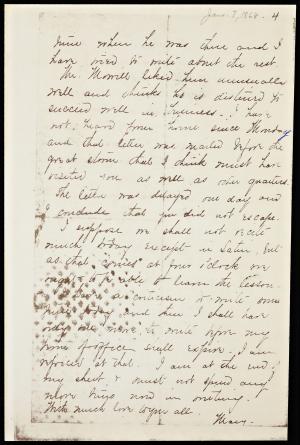 Jan. 7, 1868 - 4
time when he was there and I
have tried to write about the rest
Mr. Morrill liked him unusually
well and thinks he is destined to
succeed well in business. I have
not heard from home since Monday
and that letter was mailed before the
great storm that I think must have
visited you as well as other quarters.
The letter was delayed one day and
I conclude that you did not escape.
I suppose we shall not recite
much today except in Latin, but
as that comes at four o'clock we
ought to be able to learn the lesson.
We have a criticism to write some
today and then I shall have
only one more to write before my
term of office shall expire. I am
rejoiced at that. I am at the end of
my sheet & must not spend any
more time now in writing.
With much love to you all.
Mary.